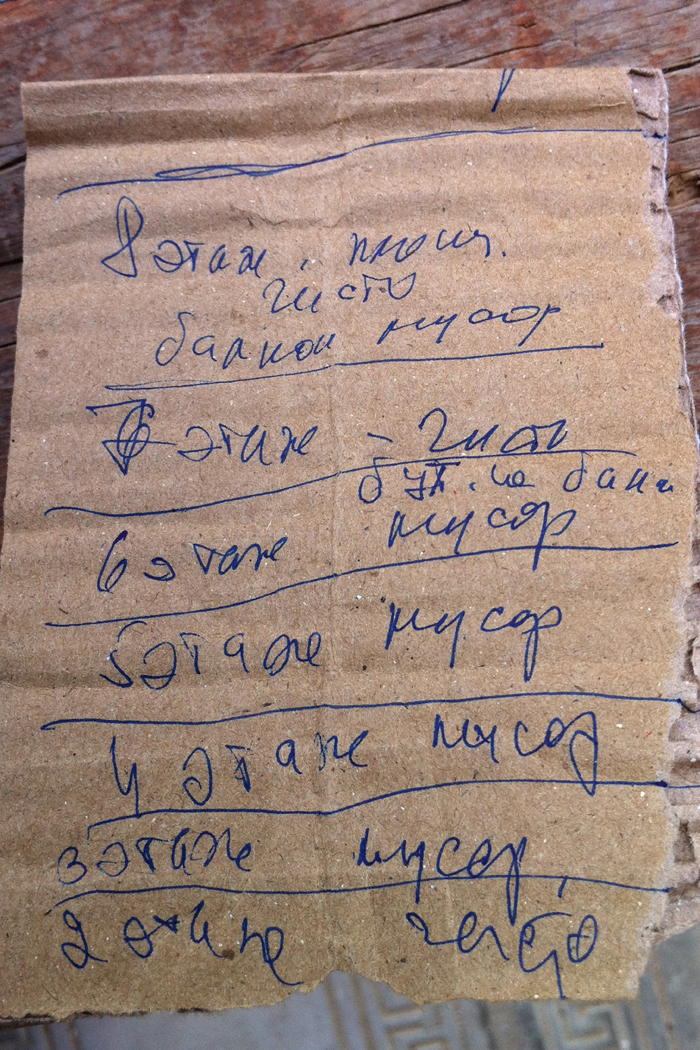 8 этаж. площ.
чисто
балкон мусор
7 этаж - чисто
бут. на балк
6 этаж мусор
5 этаж мусор
4 этаж мусор
3 этаж мусор,
2 этаж чисто